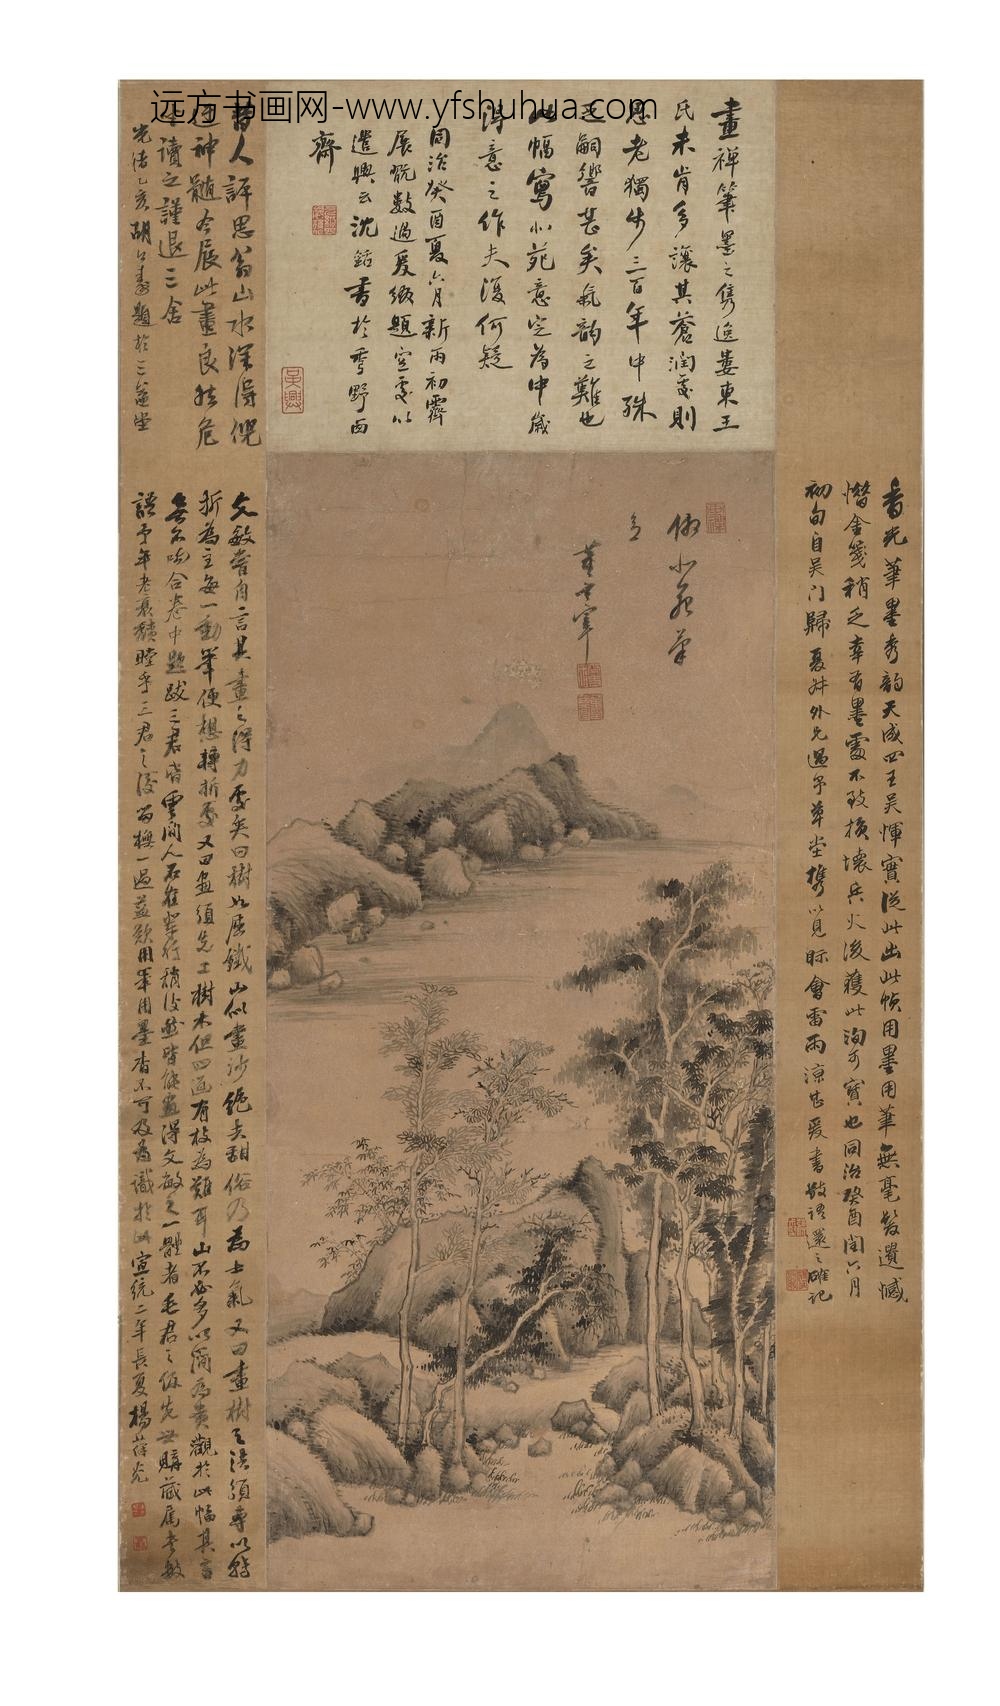 远方书画网-www.yfshuhua.com
畫禪筆墨之雋逸婁東王
氏未肯多讓其蒼潤處則
思老獨步三百年中殊
乏嗣響甚矣氣韵之難也
此幅寫小苑意定為中歲
得意之作夫復何疑
同治癸酉夏六月新雨初霽
展玩數過爰綴題空處以
遣興云沈銛書於雩野西
齋
吳興
昔人評思翁山水深得倪
迂神髓今展此畫良然危
讀之謹退三舍
光緒乙亥胡公壽題於三
香光筆墨秀韵天成四王吳惲實從此出此幀用墨用筆無毫髮遺憾
惜金箋稍乏幸有墨處不致損壞兵火後獲此洵可寶也同治癸酉閏六月
初旬自吴门歸夏外兄過予草堂携以見眎會雷雨涼甚爰書數語還之確記
仿小苑筆
玄
董玄宰
文敏嘗自言其畫之得力處矣曰樹如屈鐵山似畫沙絕去甜俗乃為士氣又曰畫樹之法須專以轉
折為主每一動筆便想轉折處又曰畫須先工樹木但四面有枝為難耳山不必多以簡為貴觀於此幅其言
無不吻合卷中題跋三君皆雲間人不在輩行稍後然皆能畫得文敏之一體者毛君之先世購藏屬
語予年老衰三君之後留橅一過益歎用筆用墨杳不可及為識於此宣統二年長夏楊葆光